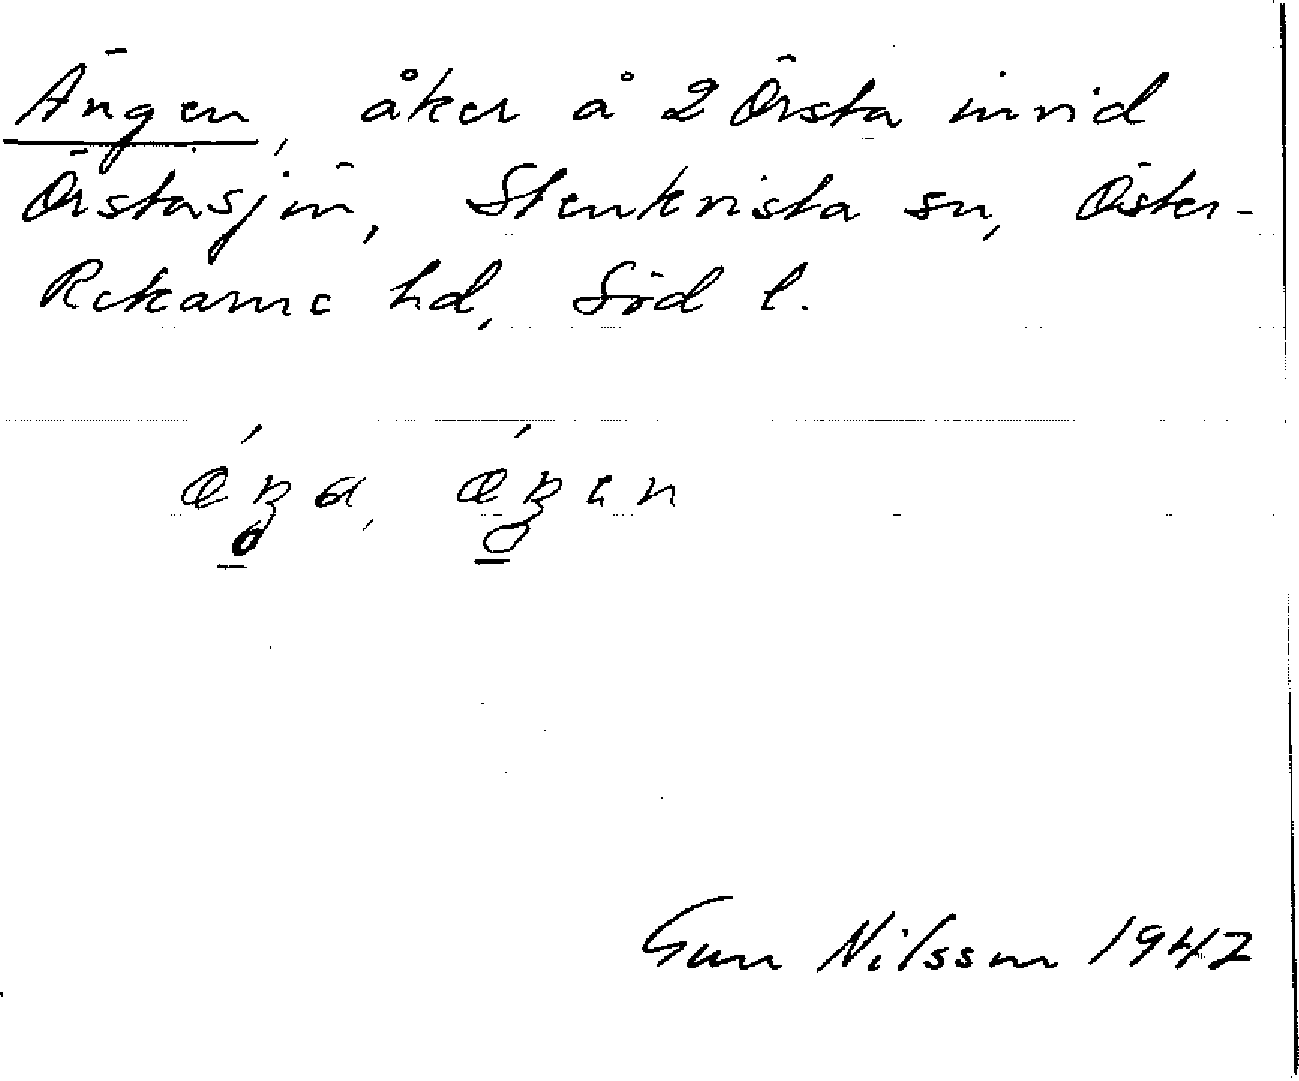 Ängen, åker å 2 Örsta invid
Örstasjön, Stenkvista sn, Öster-
Rekarne hd, Söd l.
Gun Nilsson 1942